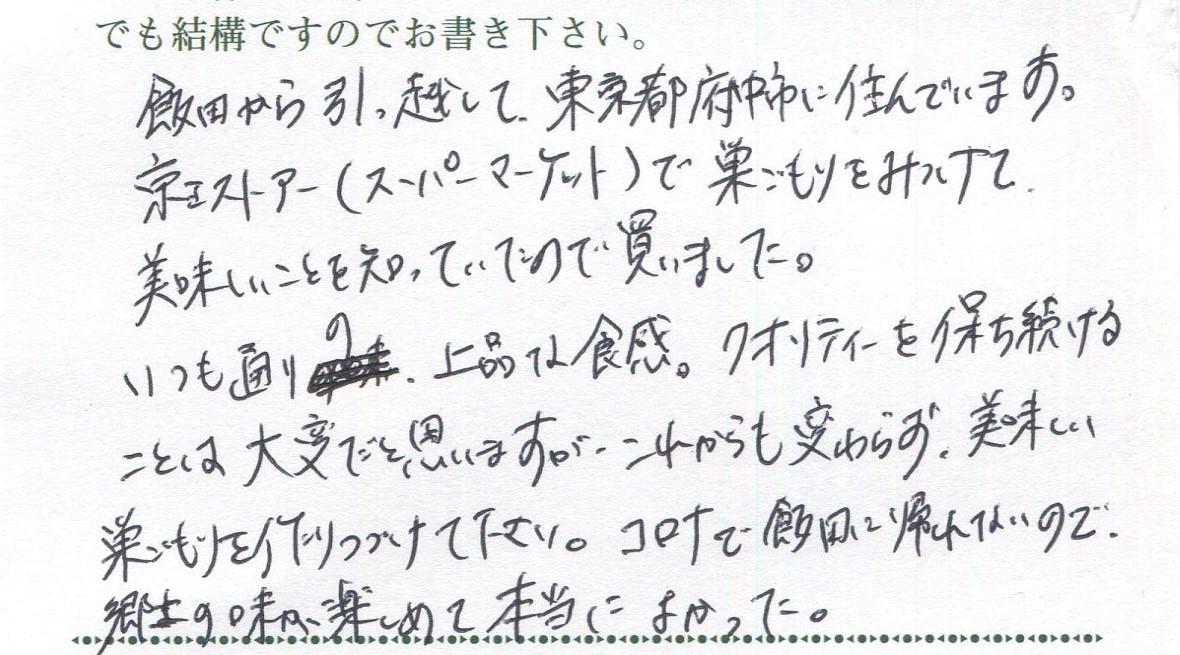 でも結構ですのでお書き下さい。
飯田から引っ越して、東京都府中市に住んでいます。
京王ストアー(スーパーマーケット)で巣ごもりをみつけて、
美味しいことを知っていたので買いました。
いつも通りの、上品な食感。クオリティーを保ち続ける
ことは大変だと思いますが、これからも変わらず、美味しい
巣ごもりを作りつづけて下さい。コロナで飯田に帰れないので、
郷土の味が楽しめて本当によかった。